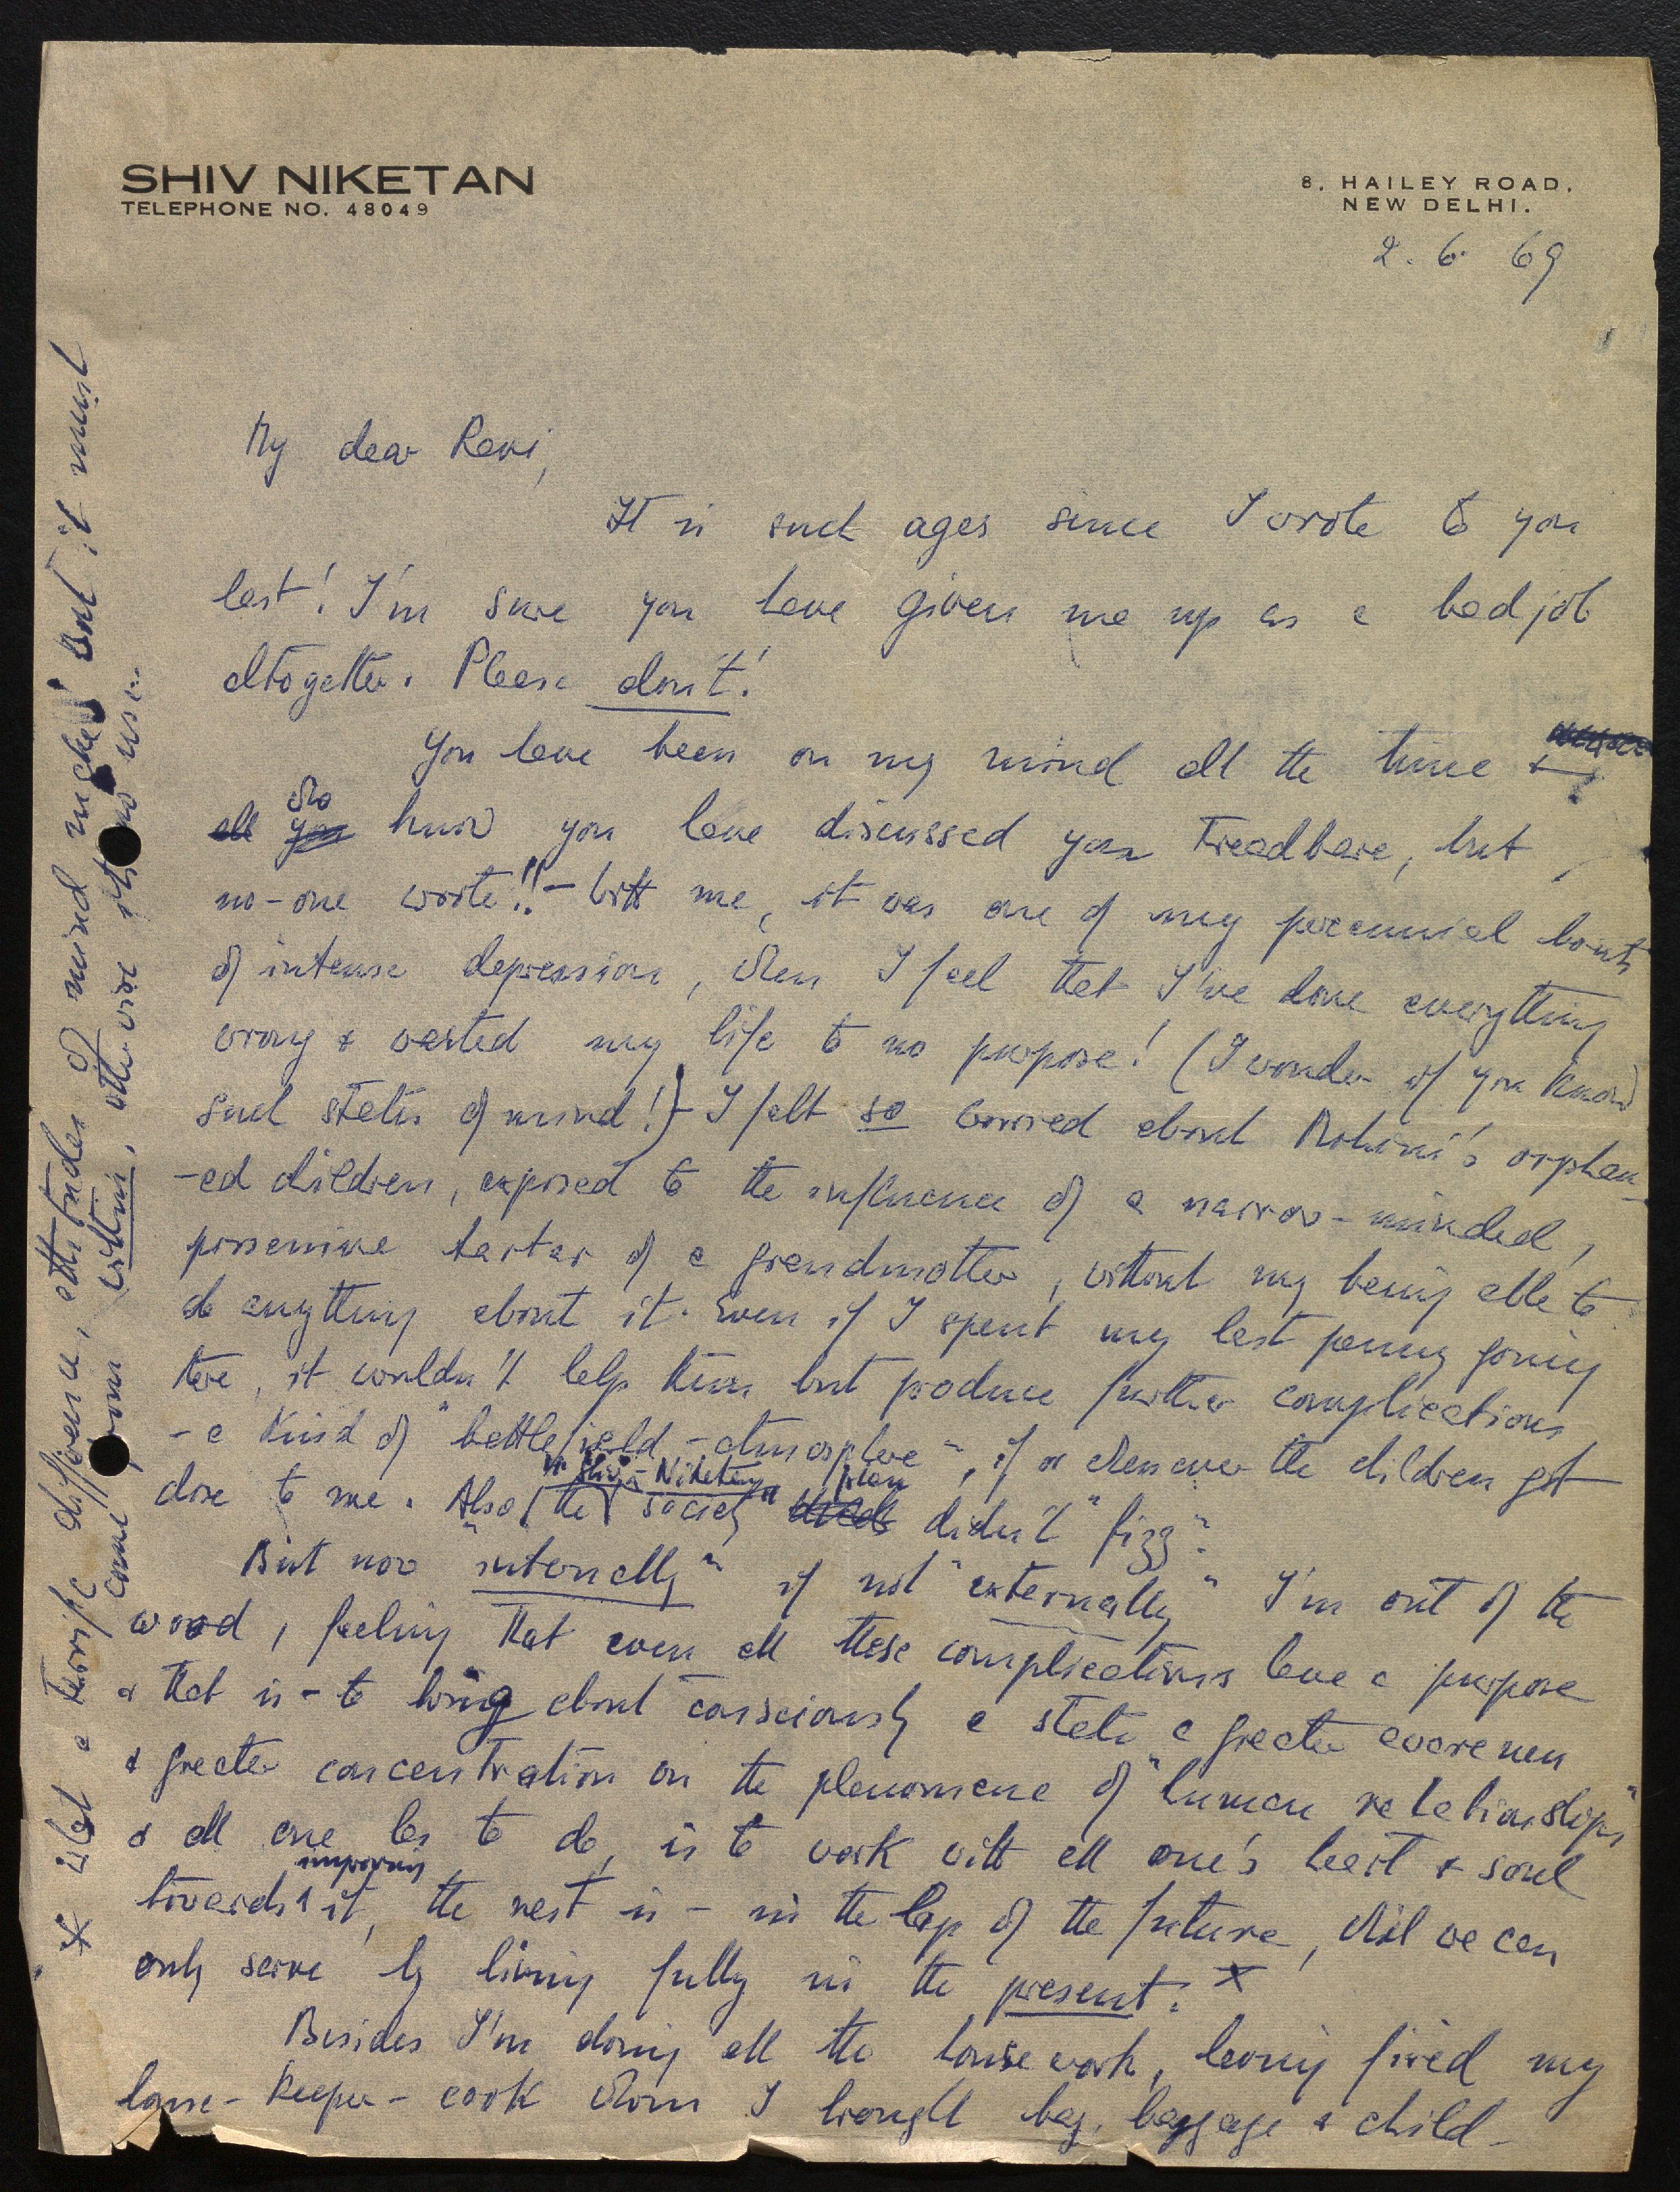 SHIV NIKETAN
TELEPHONE NO. 48049
8, HAILEY ROAD,
NEW DELHI.
2. 6. 69
My dear Ravi,
It is such ages since I wrote to you
last! I'm sure you have given me up as a bad job
altogether. Please don't!
You have been on my mind all the time &
all you who know you have discussed you threadbare, but
no-one wrote!! - With me, it was one of my perennial bouts
of intense depression, when I feel that I've done everything
wrong & wasted my life to no purpose! (I wonder if you know
such states of mind!) - I felt so worried about Mohini's orphan-
-ed children, exposed to the influence of a narrow-minded,
possessive tartar of a grandmother, without my being able to
do anything about it. Even if I spent my last penny going
there, it wouldn't help them but produce further complications
- a kind of "battlefield-atmosphere", if or whenever the children got
close to me. Also the "Shiv-Niketan society" plan didn't "fizz".
But now "internally" if not "externally" I'm out of the
wood, feeling that even all these complications have a purpose
& that is - to bring about consciously a state a greater awareness
& greater concentration on the phenomena of "human relationships"
& all one has to do, is to work with all one's heart & soul
towards improving it, the rest is - in the lap of the future, which we can
only serve by living fully in the present. x
Besides I'm doing all the housework, having fired my
house-keeper-cook whom I brought bag, baggage & child-
x What a terrific difference, attitudes of mind makes! But it must
come from within, otherwise it's no use.